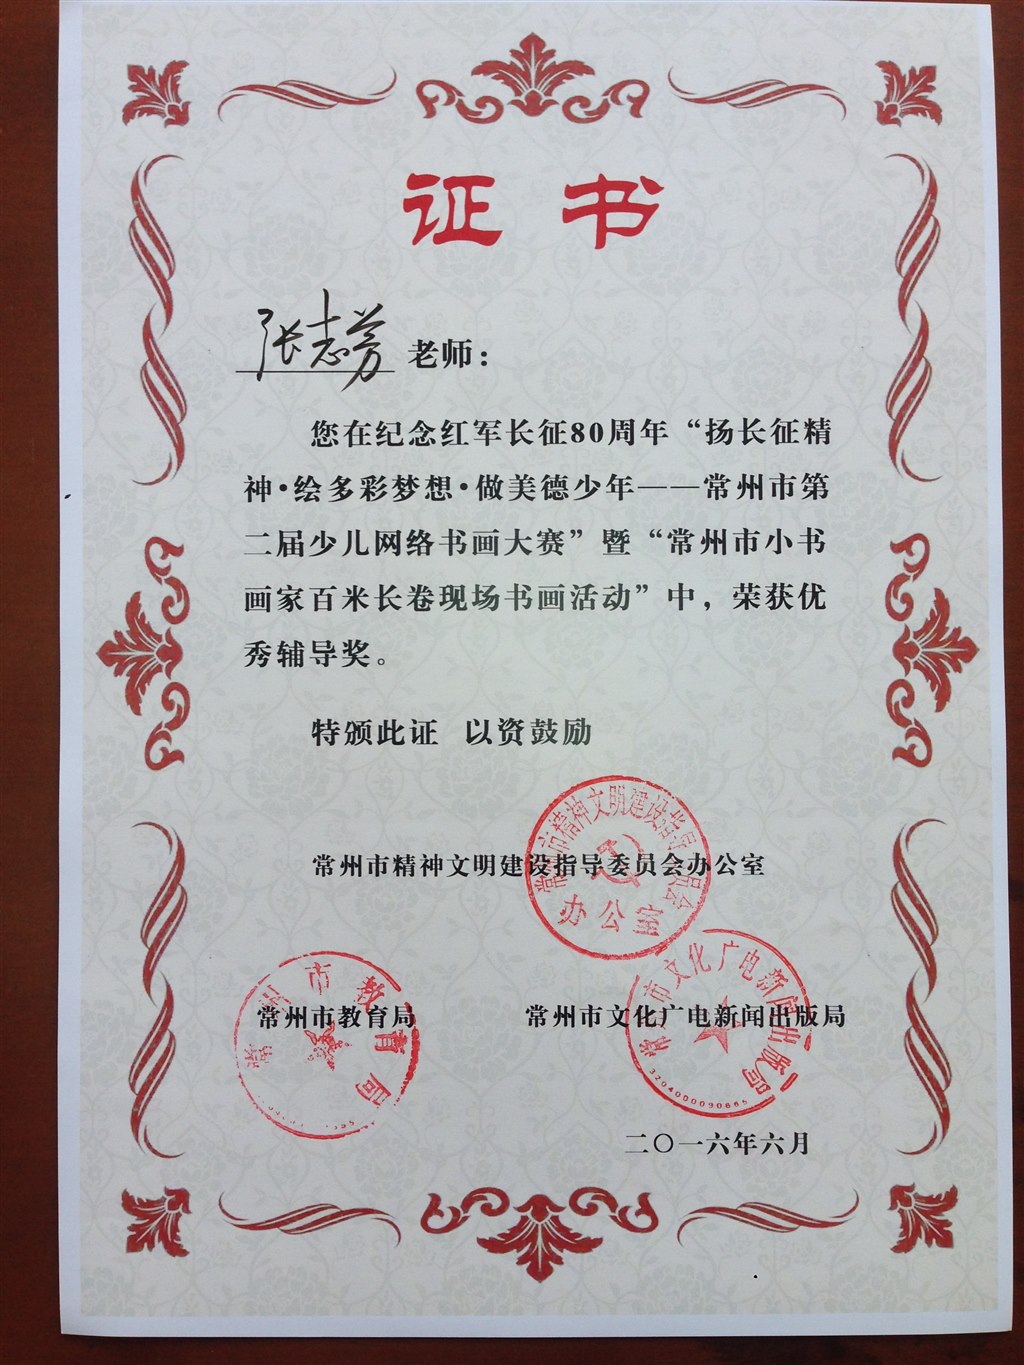 证书
张志芳 老师：
您在纪念红军长征80周年“扬长征精
神·绘多彩梦想·做美德少年——常州市第
二届少儿网络书画大赛”暨“常州市小书
画家百米长卷现场书画活动”中，荣获优
秀辅导奖。
特颁此证 以资鼓励
常州市精神文明建设指导委员会办公室
常州市精神文明建设指导委员会
办公室
常州市教育局
常州市教育局
常州市文化广电新闻出版局
常州市文化广电新闻出版局
3204000090865
二〇一六年六月